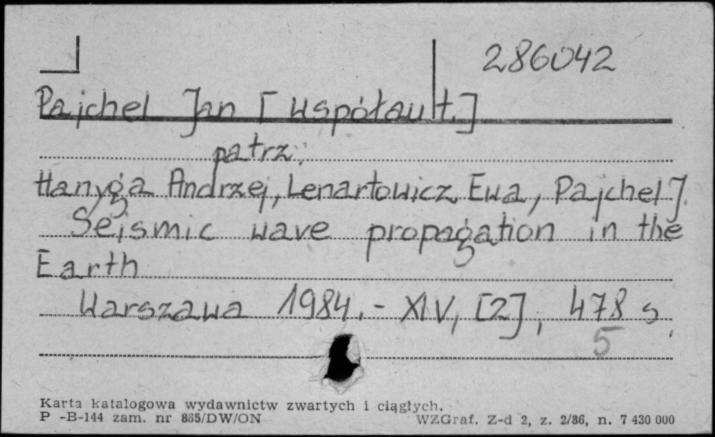 286042
Pajchel Jan [współaut.]
patrz:
Hanyga Andrzej, Lenartowicz Ewa, Pajchel J.
Seismic wave propagation in the
Earth
Warszawa 1984. - XIV, [2], 478 s.
5
Karta katalogowa wydawnictw zwartych i ciągłych.
P -B-144 zam. nr 865/DW/ON
WZGraf. Z-d 2, z. 2/86, n. 7 430 000